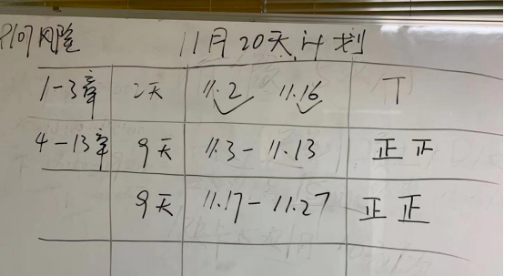 风险 11月20天计划
1-3章 2天 11.2 11.16 丅
4-13章 9天 11.3-11.13 正正
9天 11.17-11.27 正正